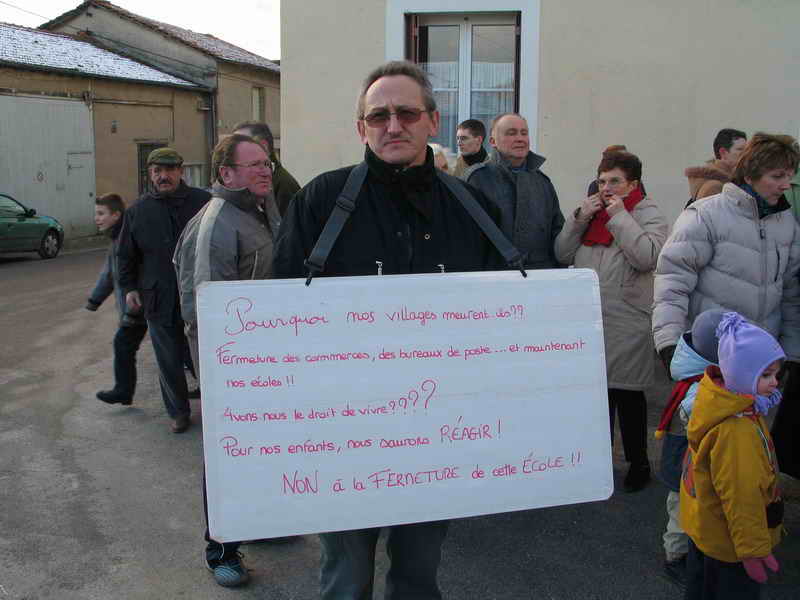 Pourquoi nos villages meurent-ils??
Fermeture des commerces, des bureaux de poste.... et maintenant
nos écoles!!
Avons nous le droit de vivre????
Pour nos enfants, nous saurons RÉAGIR!
NON à la FERMETURE de cette ÉCOLE!!